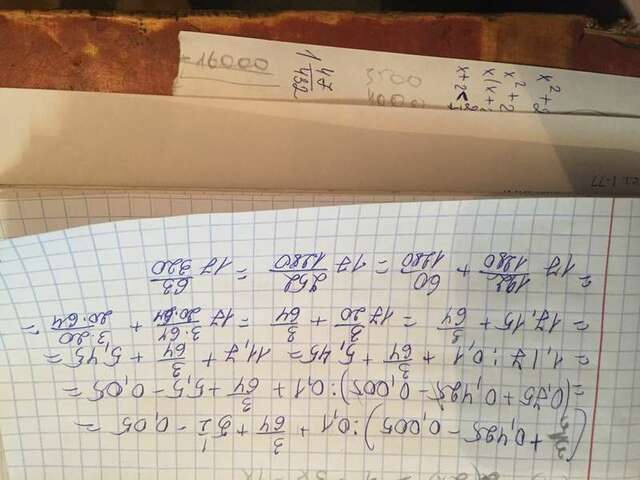 (3/4 + 0,425 - 0,005) : 0,1 + 3/64 + 5 1/2 - 0,05 =
= (0,75 + 0,425 - 0,005) : 0,1 + 3/64 + 5,5 - 0,05 =
= 1,17 : 0,1 + 3/64 + 5,45 = 11,7 + 3/64 + 5,45 =
= 17,15 + 3/64 = 17 3/20 + 3/64 = 17 3·64/20·64 + 3·20/20·64 =
= 17 192/1280 + 60/1280 = 17 252/1280 = 17 63/320
16000
47
432
5500
x+2
x²+2
x²+2
1-77